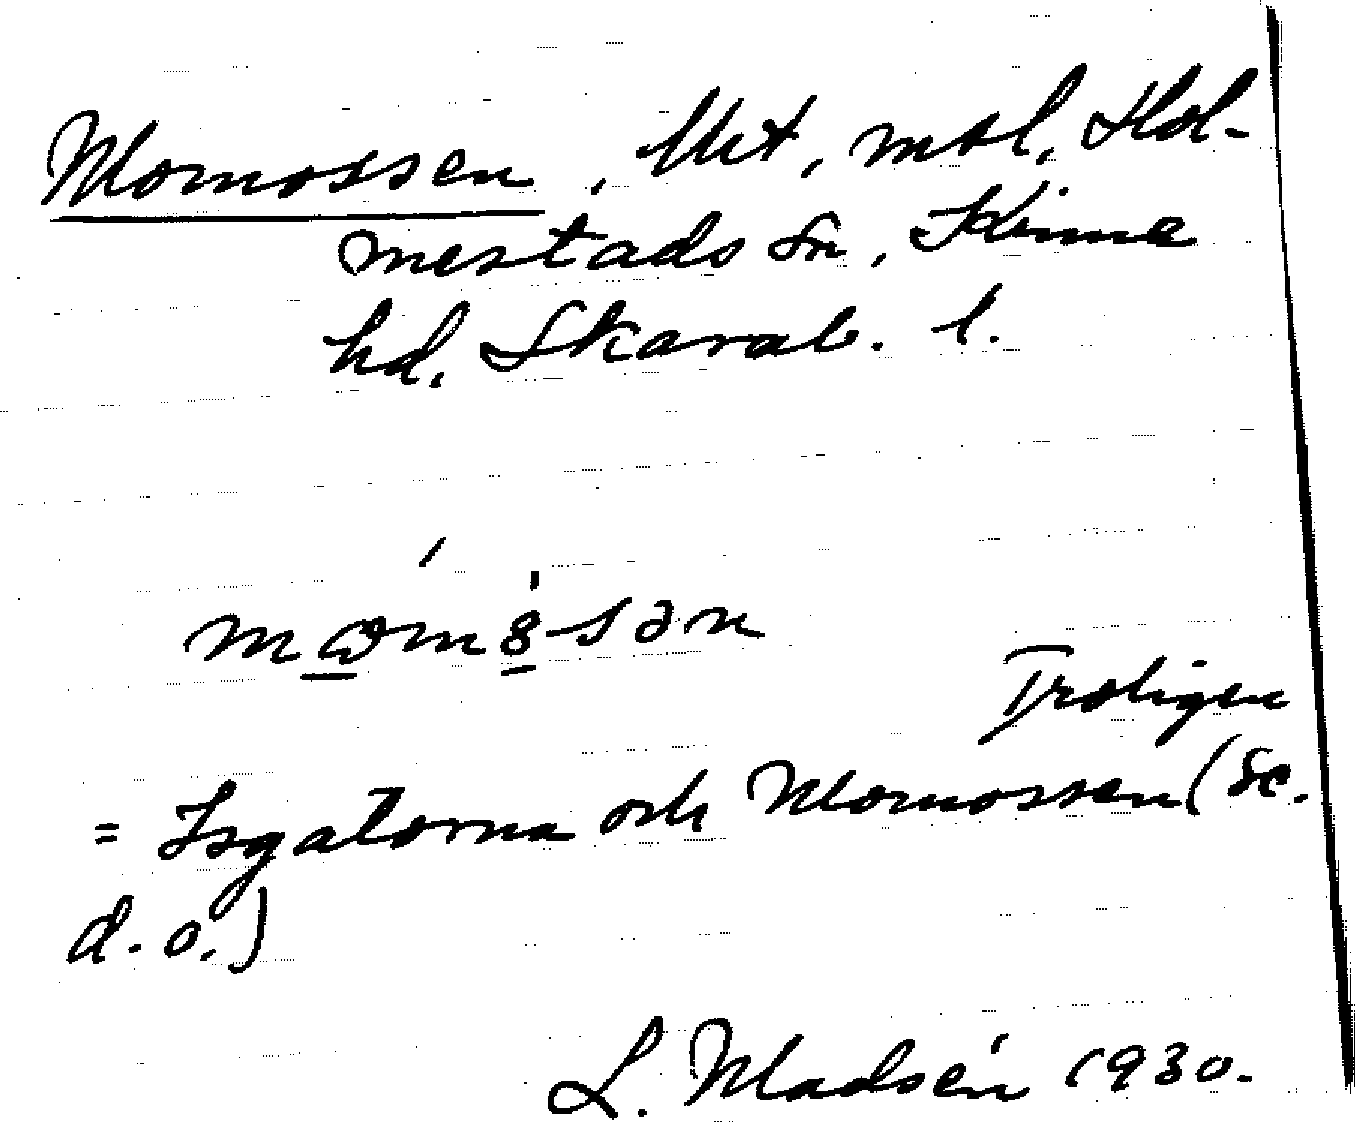 Momossen, Utr, mbl, Hol-
mestads sn, Kinne
hd, Skarab. l.
Troligen
= Isgatorna och Momossen (se.
d.o.)
L. Madsén 1930.